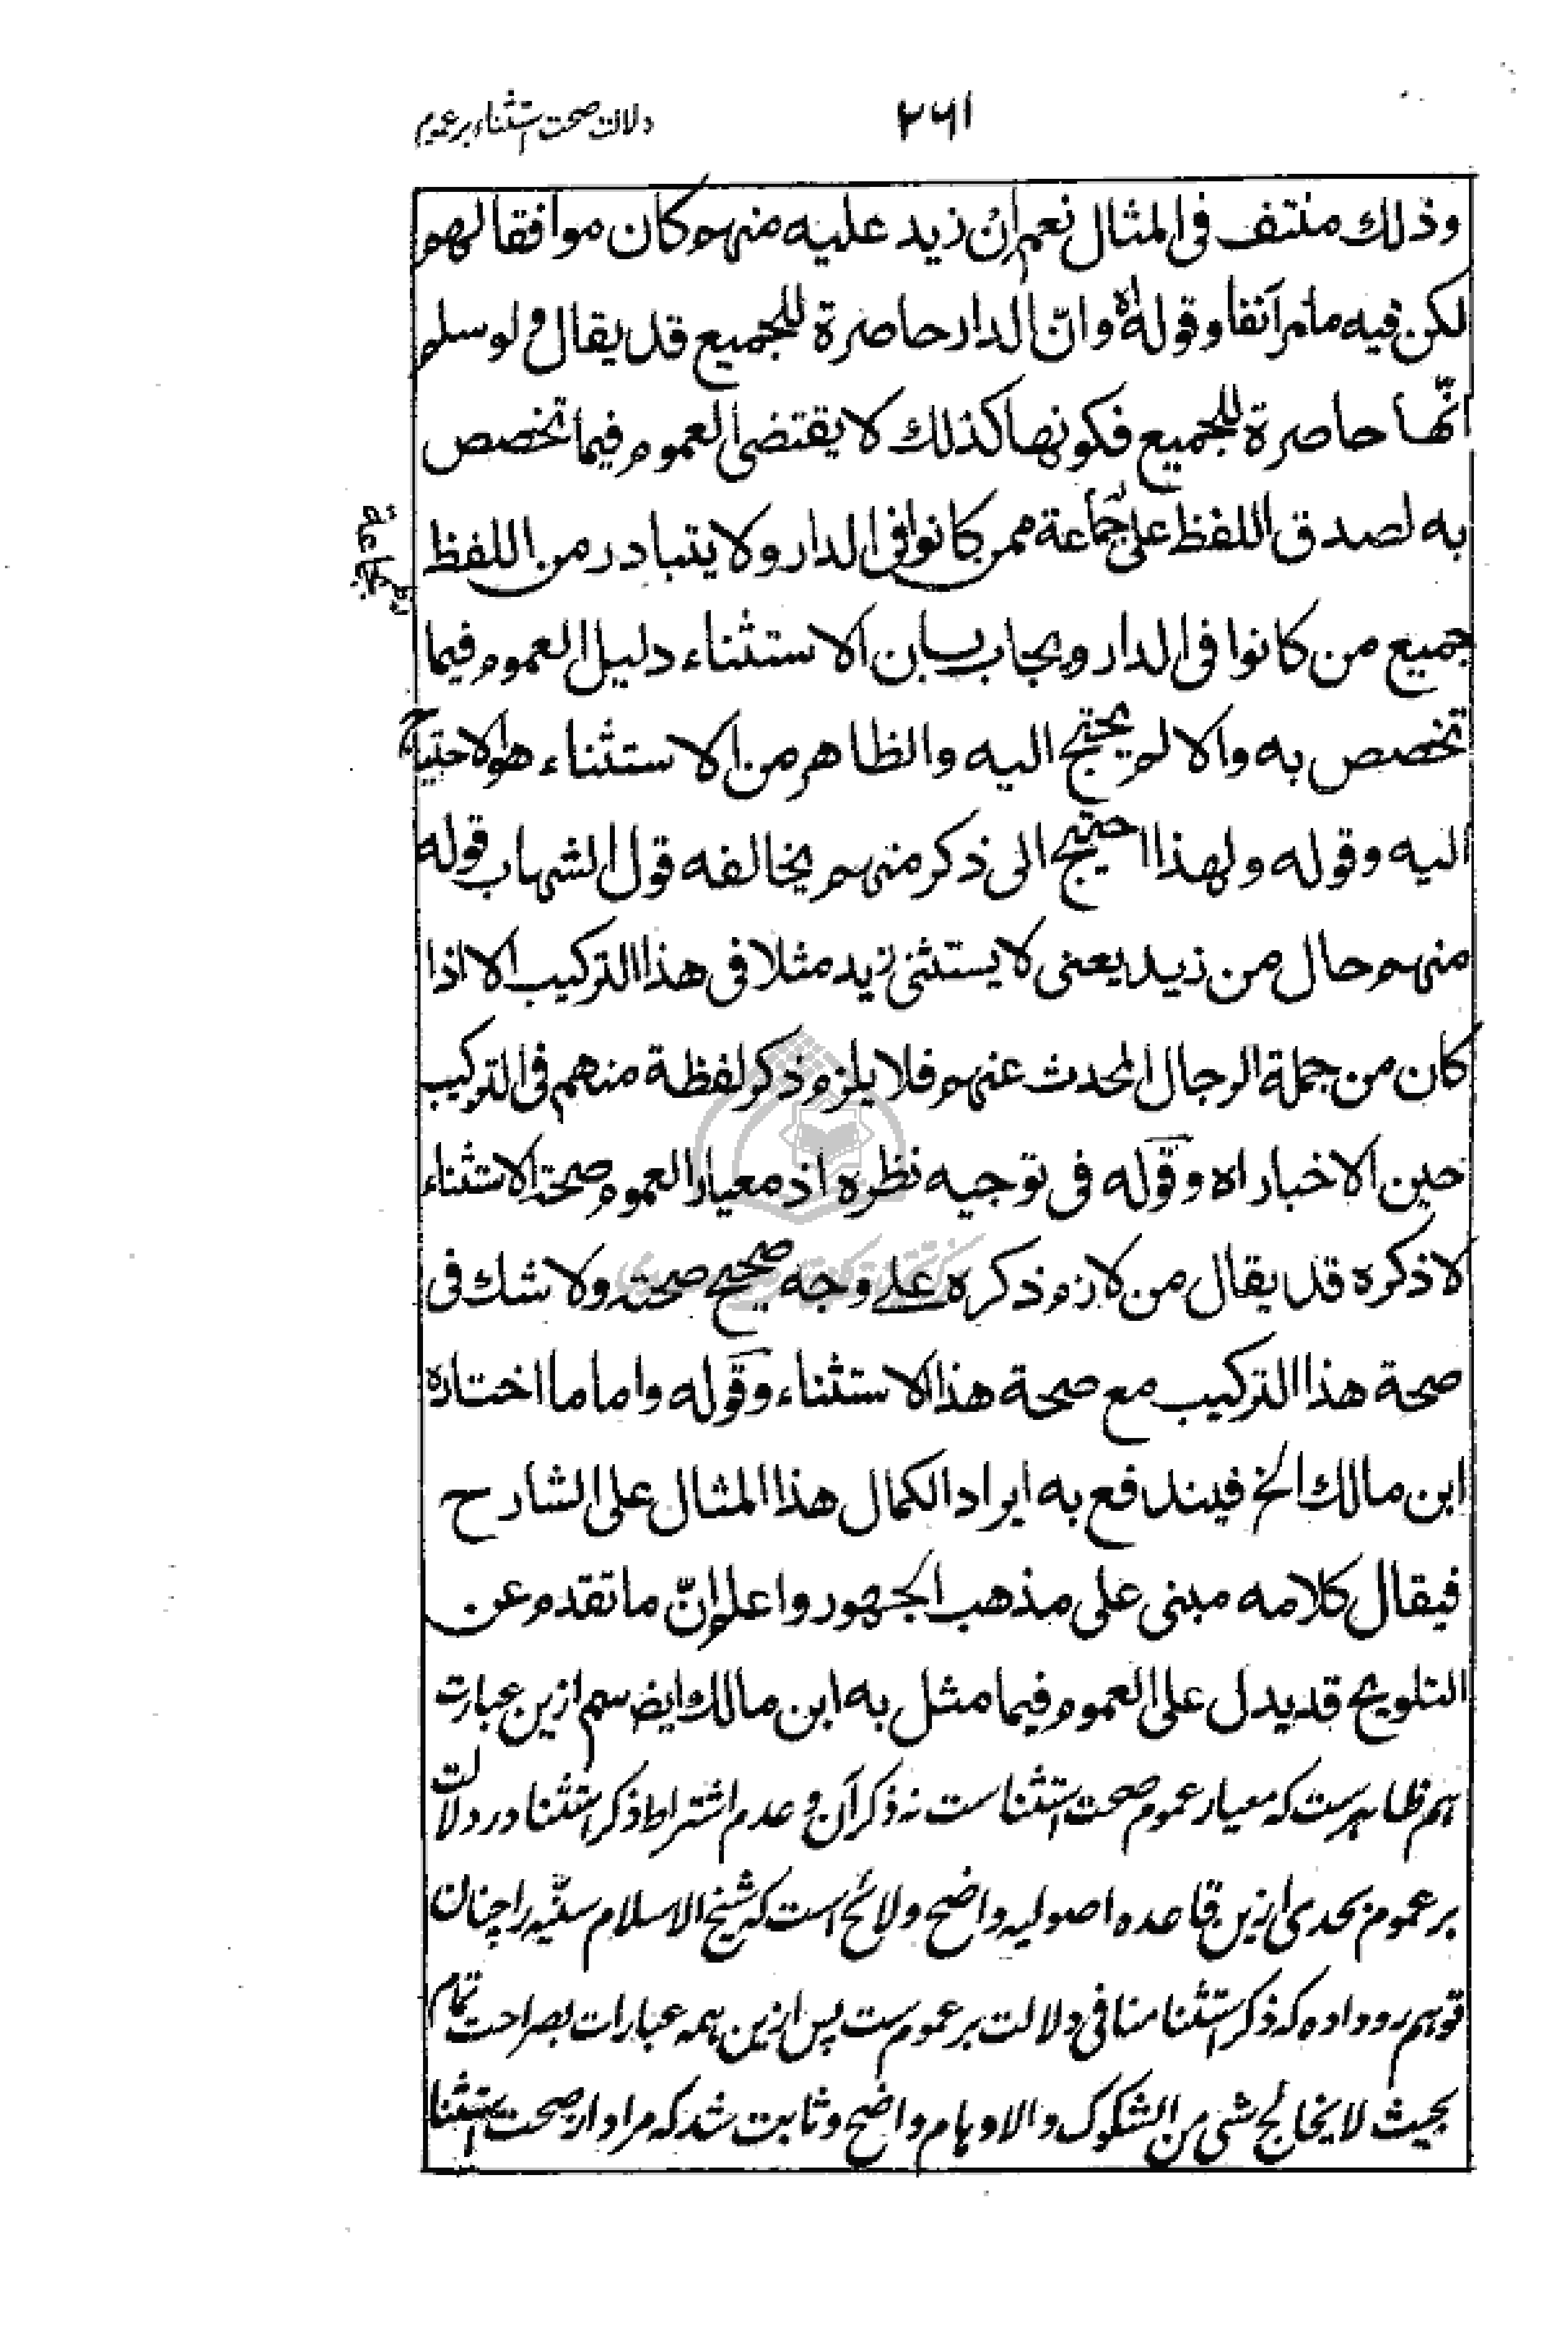 دلالت صحت استثناء بر عموم
۲۶۱
وذلك منتف فی المثال نعم ان زید علیه منهم کان موافقا لهم
لکن فیه ما مر آنفا وقوله اه وانّ الدار حاصرة للجمیع قد یقال ولو سلم
انّها حاصرة للجمیع فکونها کذلك لا یقتضی العموم فیما تخصص
به لصدق اللفظ علی جماعة ممن کانوا فی الدار ولا یتبادر من اللفظ
جمیع من کانوا فی الدار ویجاب بان الاستثناء دلیل العموم فیما
تخصص به والا لم یحتج الیه والظاهر من الاستثناء هو الاحتیاج
الیه وقوله ولهذا احتیج الی ذکر منهم یخالفه قول الشهاب قوله
منهم حال من زید یعنی لا یستثنی زید مثلا فی هذا الترکیب الا اذا
کان من جملة الرجال المحدث عنهم فلا یلزم ذکر لفظة منهم فی الترکیب
حین الاخبار اه وقوله فی توجیه نظره اذ معیار العموم صحة الاستثناء
لا ذکره قد یقال من لازم ذکره علی وجه صحیح صحته ولا شك فی
صحة هذا الترکیب مع صحة هذا الاستثناء وقوله واما ما اختاره
ابن مالك الخ فیندفع به ایراد الکمال هذا المثال علی الشارح
فیقال کلامه مبنی علی مذهب الجمهور واعلم انّ ما تقدم عن
التلویح قد یدل علی العموم فیما مثل به ابن مالك ایضا سم ازین عبارت
هم ظاهرست که معیار عموم صحت استثناست نه ذکر آن و عدم اشتراط ذکر استثنا در دلالت
بر عموم بحدی ازین قاعده اصولیه واضح ولائح است که شیخ الاسلام سنّیه را چنان
توهم رو داده که ذکر استثنا منافی دلالت بر عموم ست پس ازین همه عبارات بصراحت تمام
بحیث لا یخالج شیء من الشکوک والاوهام واضح وثابت شد که مراد از صحت استثنا